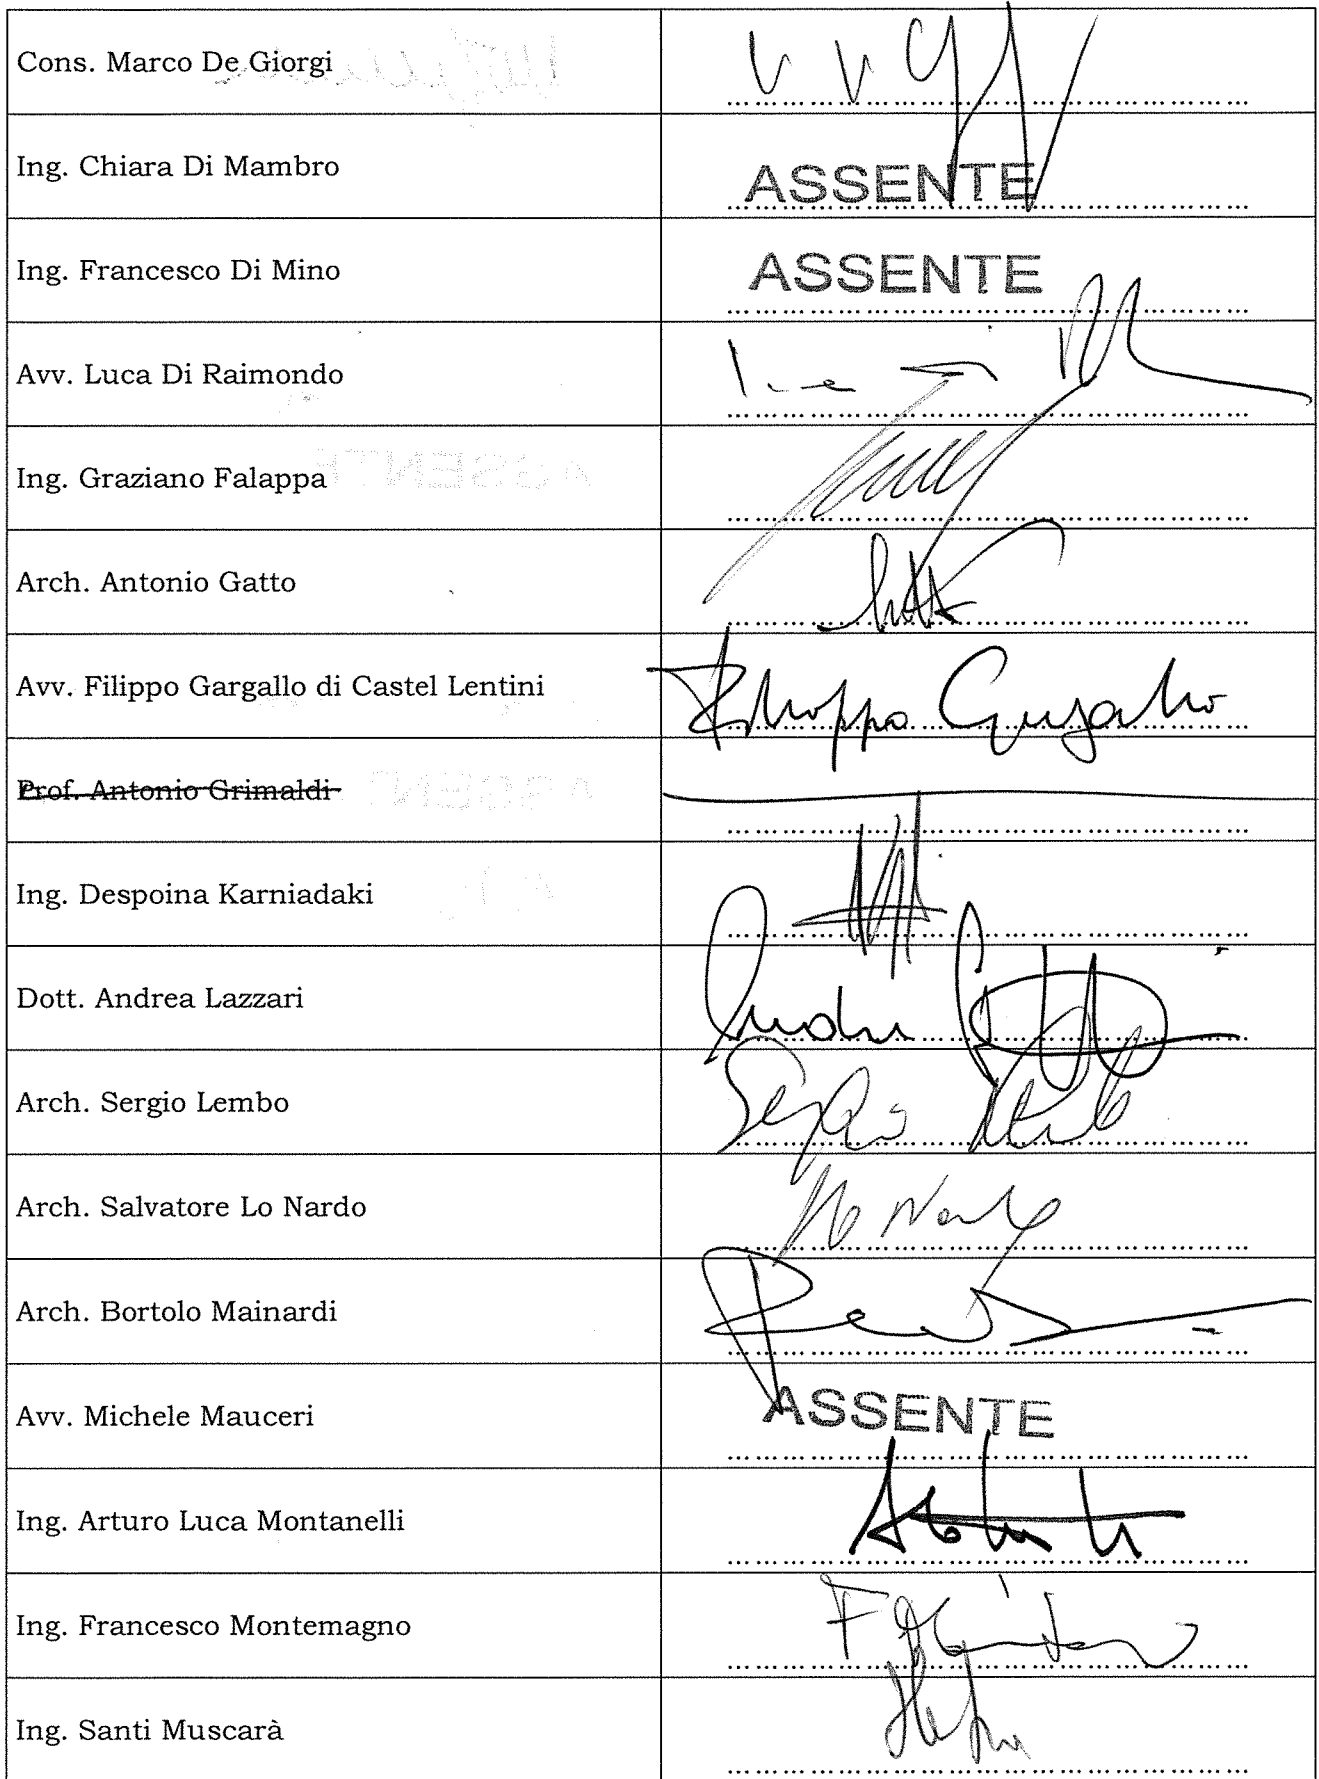 Cons. Marco De Giorgi
Ing. Chiara Di Mambro ASSENTE
Ing. Francesco Di Mino ASSENTE
Avv. Luca Di Raimondo
Ing. Graziano Falappa
Arch. Antonio Gatto
Avv. Filippo Gargallo di Castel Lentini Filippo Gargallo
Prof. Antonio Grimaldi
Ing. Despoina Karniadaki
Dott. Andrea Lazzari
Arch. Sergio Lembo Sergio Lembo
Arch. Salvatore Lo Nardo Lo Nardo
Arch. Bortolo Mainardi
Avv. Michele Mauceri ASSENTE
Ing. Arturo Luca Montanelli
Ing. Francesco Montemagno
Ing. Santi Muscarà